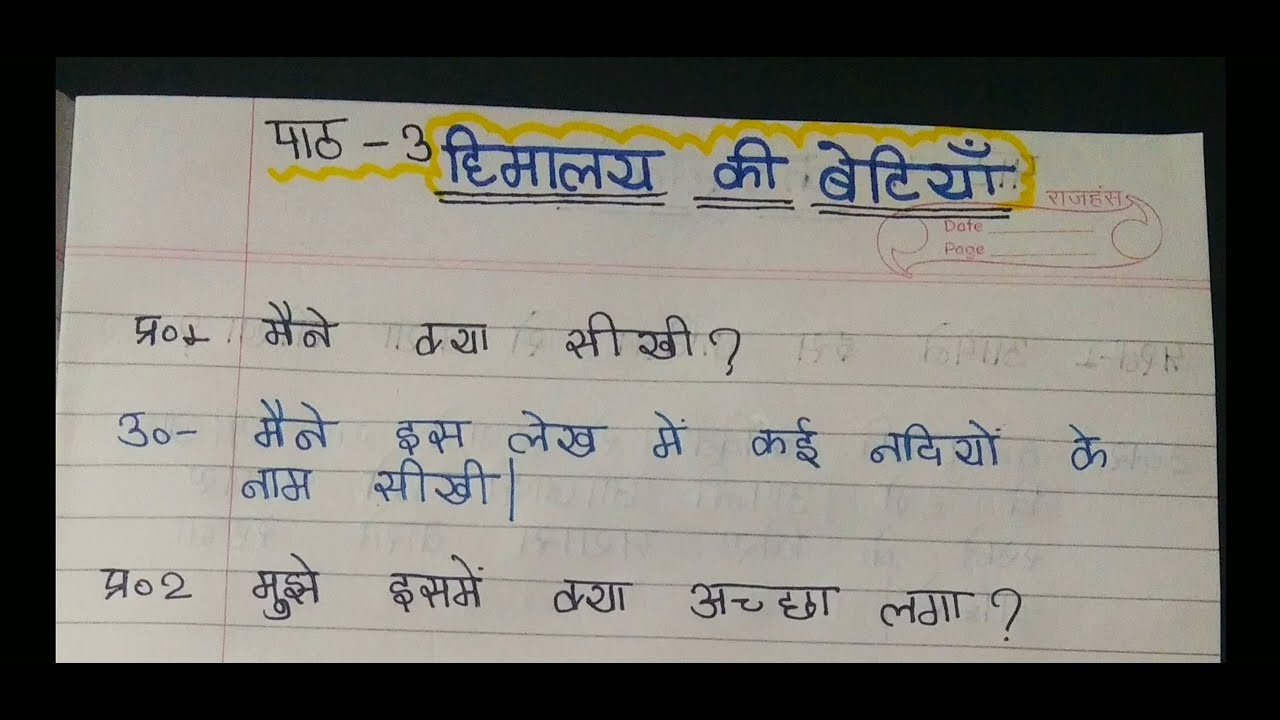 पाठ - 3 हिमालय की बेटियाँ
राजहंस
Date
Page
प्र०1 मैने क्या सीखी?
उ०- मैने इस लेख में कई नदियों के
नाम सीखी|
प्र०2 मुझे इसमें क्या अच्छा लगा?